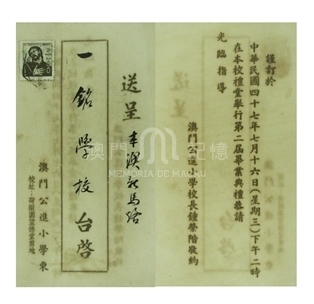 謹訂於
中華民國四十七年七月十六日(星期三)下午二時
在本校禮堂舉行第二屆畢業典禮恭請
光臨指導
澳門公進小學校長鍾榮階敬約
送呈
一銘學校台啓
澳門公進小學柬
澳門記憶
MEMÓRIA DE MACAU